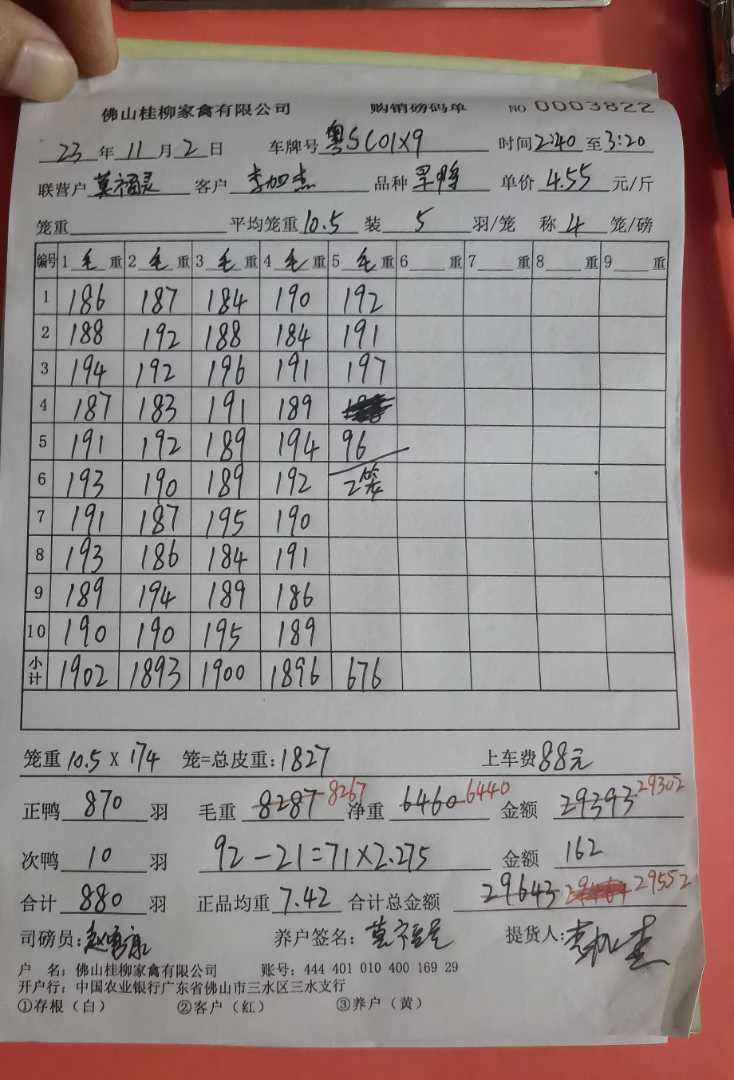 佛山桂柳家禽有限公司 购销磅码单 NO 0003822
23 年 11 月 2 日 车牌号 粤SC01X9 时间 2:40 至 3:20
联营户 莫福灵 客户 李加杰 品种 单价 4.55 元/斤
笼重 平均笼重 10.5 装 5 羽/笼 称 4 笼/磅
编号 1 毛 重 2 毛 重 3 毛 重 4 毛 重 5 毛 重 6 重 7 重 8 重 9 重
1 186 187 184 190 192
2 188 192 188 184 191
3 194 192 196 191 197
4 187 183 191 189
5 191 192 189 194 96
6 193 190 189 192 2笼
7 191 187 195 190
8 193 186 184 191
9 189 194 189 186
10 190 190 195 189
小计 1902 1893 1900 1896 676
笼重 10.5 X 174 笼=总皮重: 1827 上车费 88元
正鸭 870 羽 毛重 8287 8267 净重 6460 6440 金额 29393 29302
次鸭 10 羽 92-21=71×2.275 金额 162
合计 880 羽 正品均重 7.42 合计总金额 29643 29552
司磅员: 养户签名: 提货人:
户 名: 佛山桂柳家禽有限公司 账号: 444 401 010 400 169 29
开户行: 中国农业银行广东省佛山市三水区三水支行
①存根(白) ②客户(红) ③养户(黄)